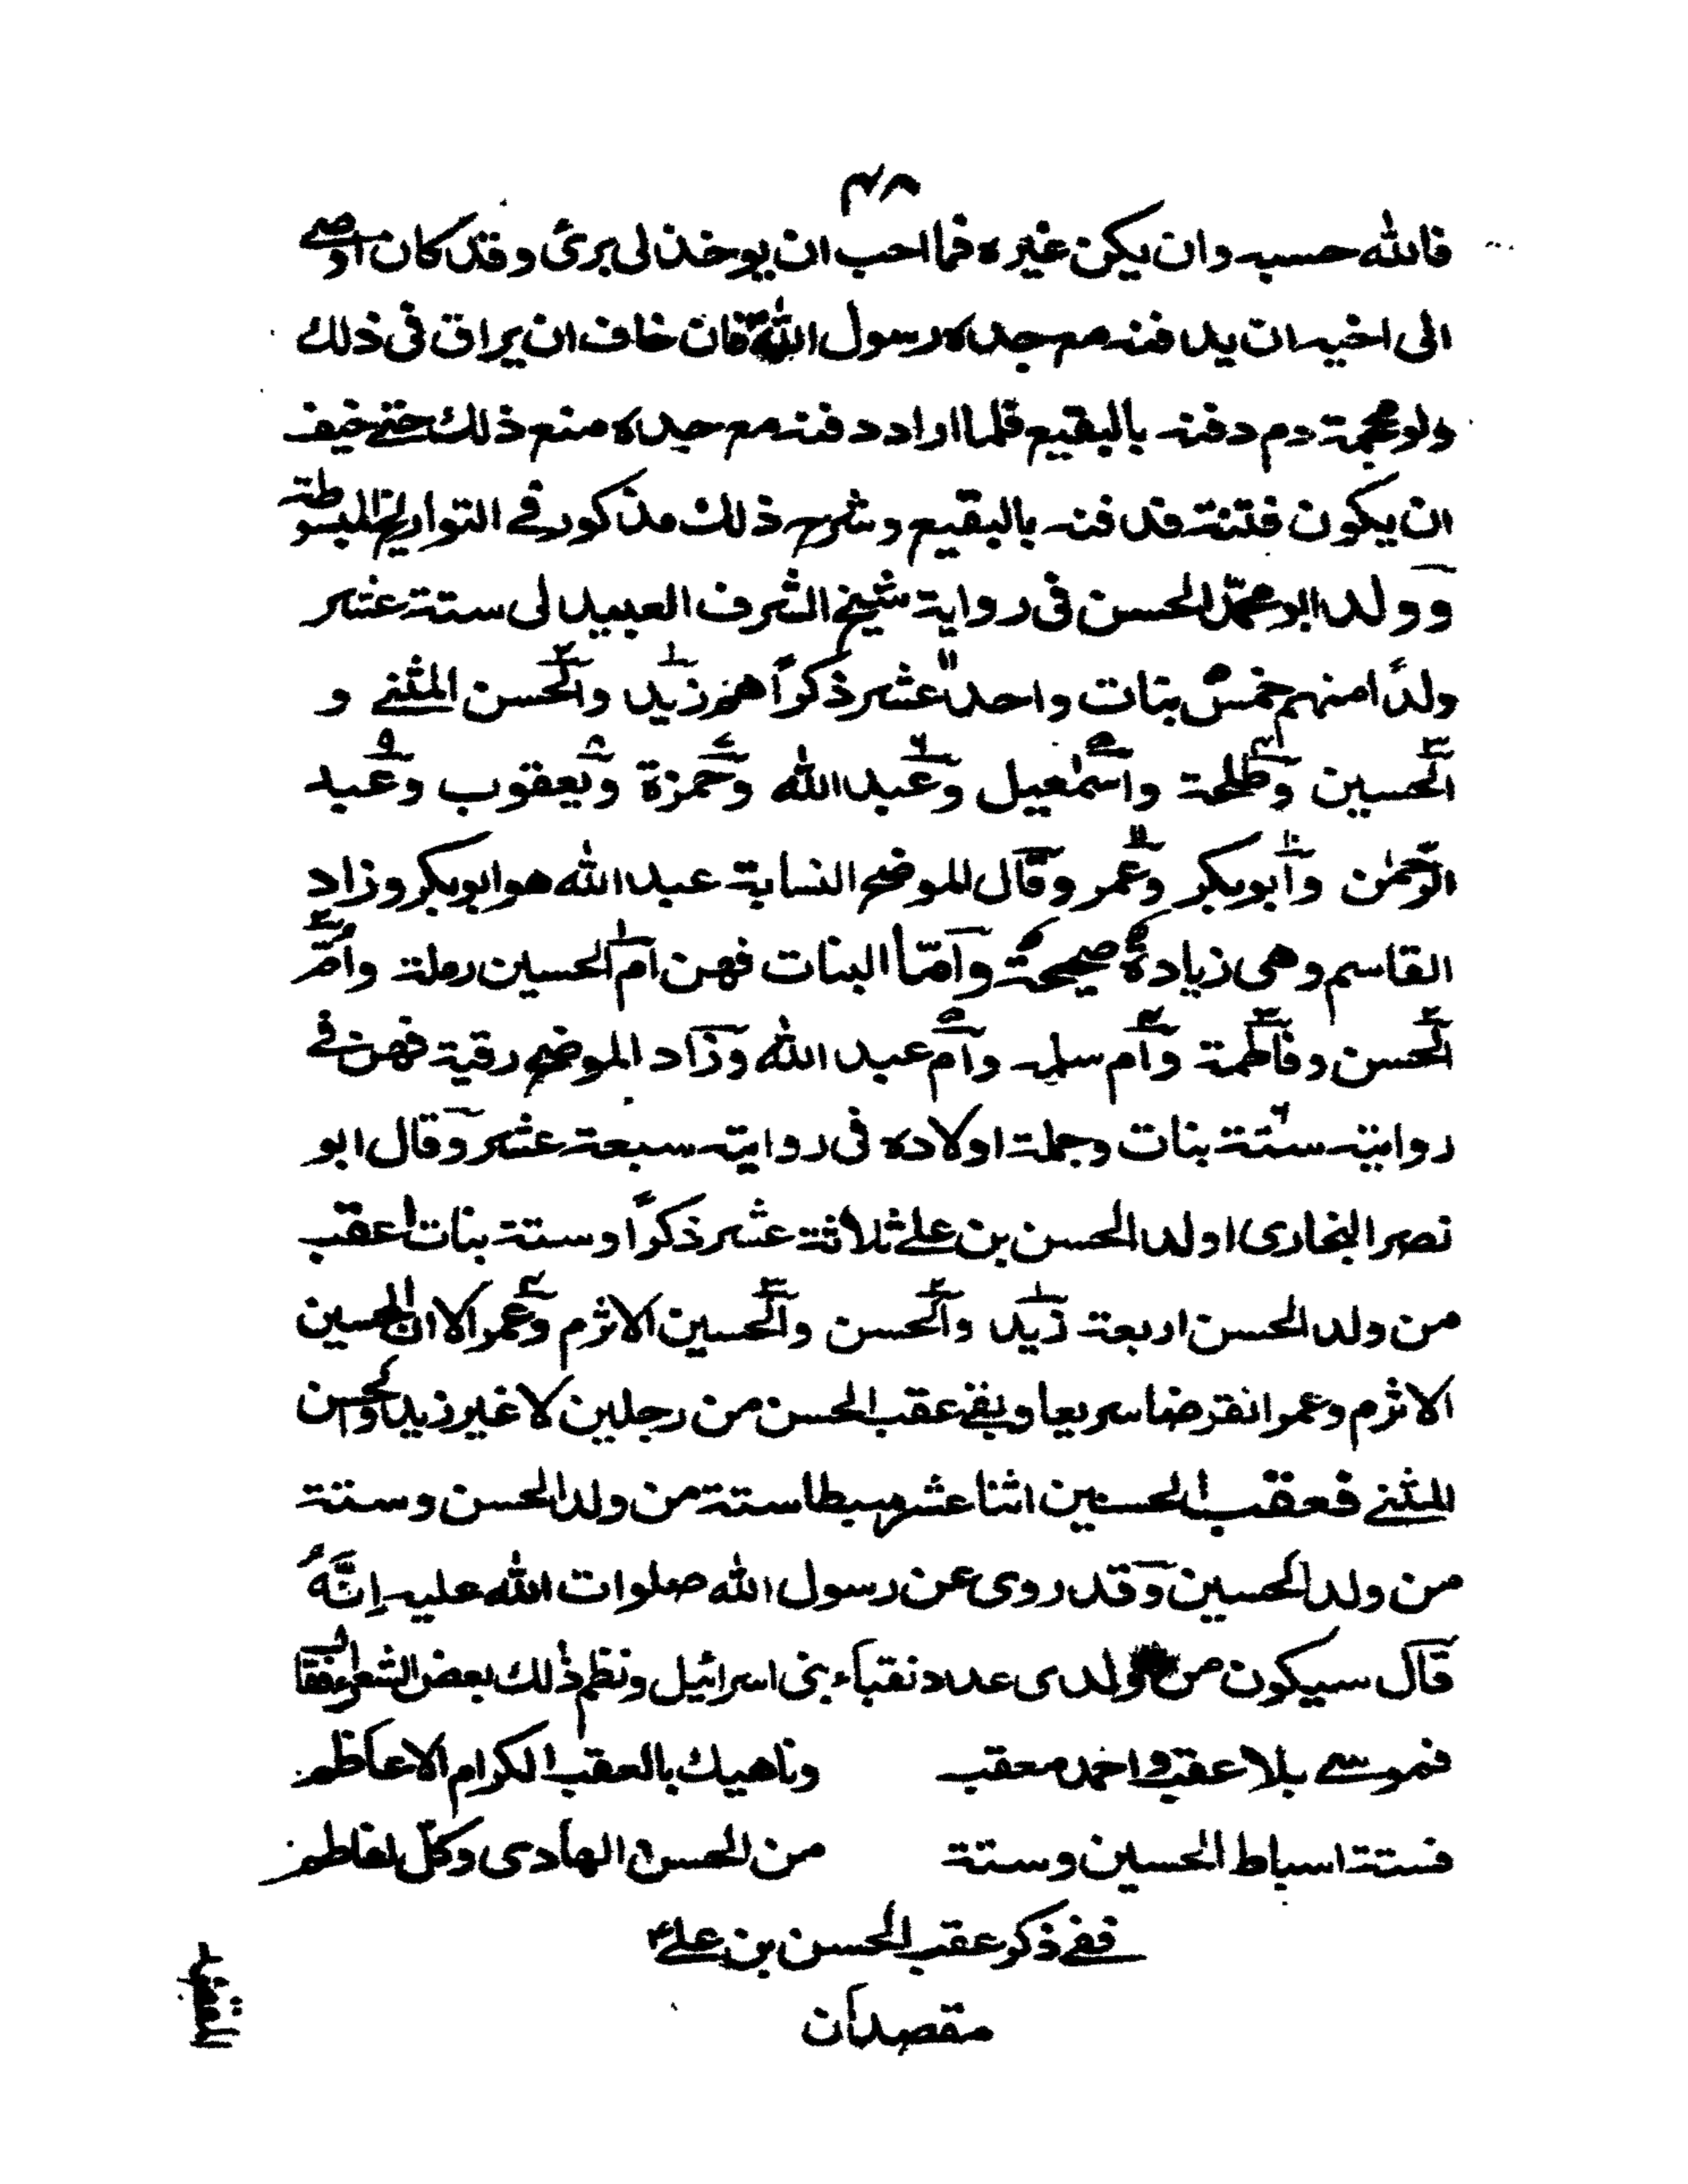 ٤٨
فالله حسبه وان يكن غيره فما احب ان يوخذ لى برئ وقد كان اوصى
الى اخيه ان يدفنه مع جده رسول الله فان خاف ان يراق فى ذلك
ولو محجمة دم دفنه بالبقيع فلما اراد دفنه مع جده منع ذلك حتى خيف
ان يكون فتنة فدفنه بالبقيع وشرح ذلك مذكور فى التواريخ المبسوطة
وولد ابو محمّد الحسن فى رواية شيخ الشرف العبيدلى ستة عشر
ولدًا منهم خمس بنات واحد عشر ذكرًا هم زيد والحسن المثنى و
الحسين وطلحة واسمٰعيل وعبد الله وحمزة ويعقوب وعبد
الرّحمٰن وابو بكر وعمر وقال الموضح النسابة عبد الله هو ابو بكر وزاد
القاسم وهى زيادة صحيحة وامّا البنات فهن ام الحسين رملة وامّ
الحسن وفاطمة وام سلمه وام عبد الله وزاد الموضح رقية فهن فى
روايته ستة بنات وجملة اولاده فى روايته سبعة عشر وقال ابو
نصر البخارى اولد الحسن بن على ثلاثة عشر ذكرًا وستة بنات اعقب
من ولد الحسن اربعة زيد والحسن والحسين الاثرم وعمر الا ان الحسين
الاثرم وعمر انقرضا سريعا وبقى عقب الحسن من رجلين لا غير زيد والحسن
المثنى فعقب الحسنين اثنا عشر سبطا ستة من ولد الحسن وستة
من ولد الحسين وقد روى عن رسول الله صلوات الله عليه اِنَّهُ
قال سيكون من ولدى عدد نقباء بنى اسرائيل ونظم ذلك بعض الشعراء فقال
فموسى بلا عقب واحمد معقب وناهيك بالعقب الكرام الاعاظم
فستة اسباط الحسين وستة من الحسن الهادى وكلّ لفاطم
ففى ذكر عقب الحسن بن على ع
مقصدان